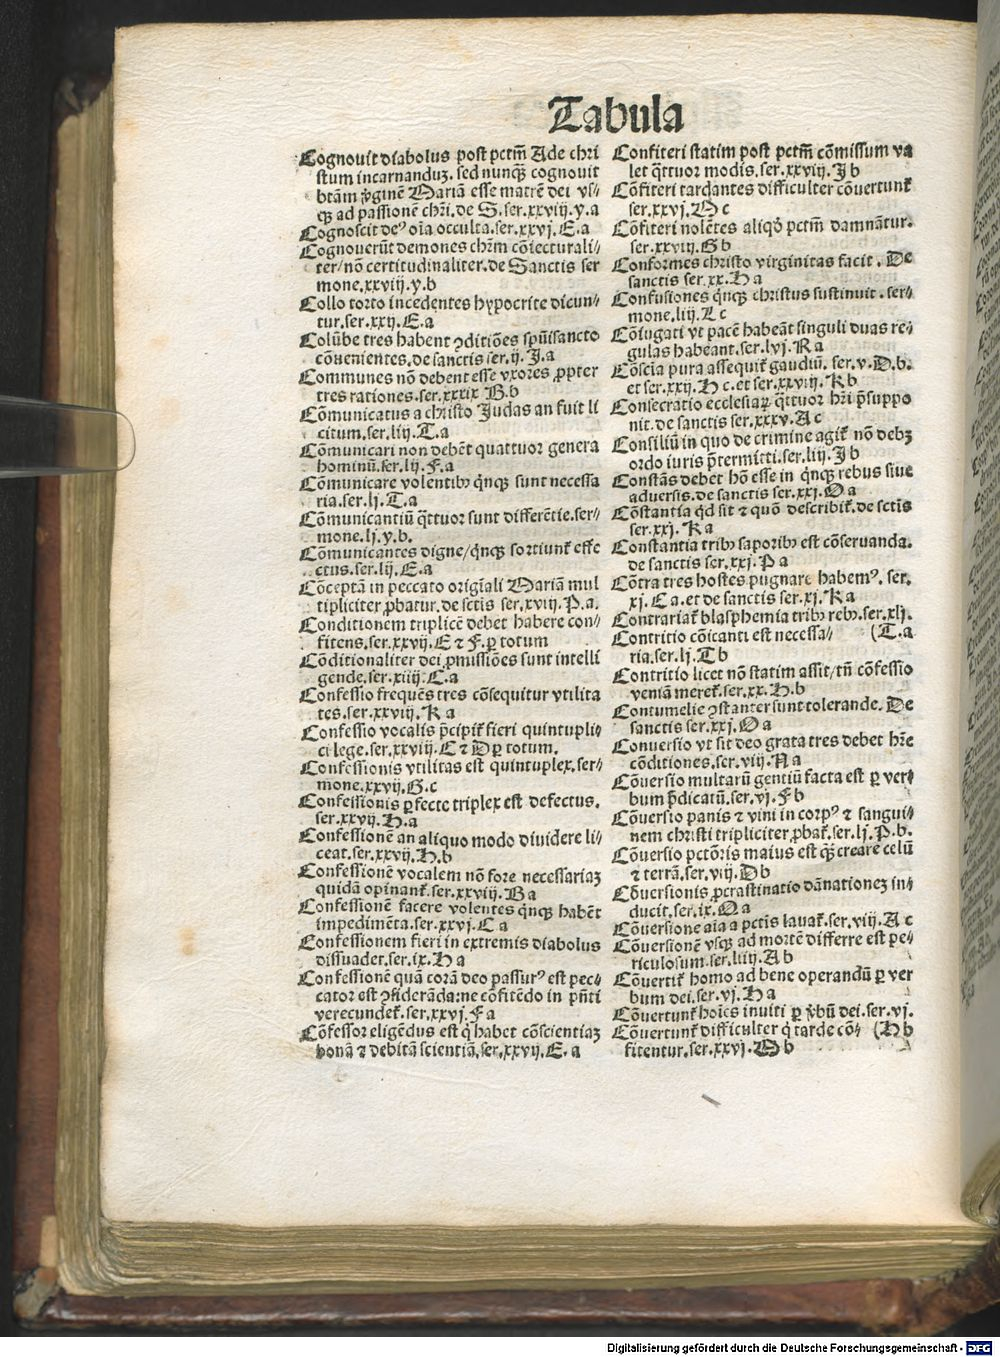 Tabula
Cognouit diabolus post pctm̄ Ade chri
stum incarnanduꝫ. sed nunqꝫ cognouit
btām v̓ginē Mariā esse matrē dei vs⸗
qꝫ ad passionē chr̄i.de S.ser.xxviij.y.a
Cognoscit deꝰ oīa occulta.ser.xxvj.E.a
Cognouerūt demones chr̄m cōiecturali⸗
ter/nō certitudinaliter.de Sanctis ser
mone.xxviij.y.b
Collo torto incedentes hypocrite dicun⸗
tur.ser.xxij.E.a
Colūbe tres habent ꝯditiōes spūssancto
cōuenientes.de sanctis ser.ij.J.a
Communes nō debent esse vxores ꝓpter
tres rationes.ser.xxxix B.b
Cōmunicatus a christo Judas an fuit li
citum.ser.liij.T.a
Cōmunicari non debēt quattuor genera
hominū.ser.lij.F.a
Cōmunicare volentibꝫ qn̄qꝫ sunt necessa
ria.ser.lj.T.a
Cōmunicantiū q̄ttuor sunt differētie.ser⸗
mone.lj.y.b.
Cōmunicantes digne/qn̄qꝫ sortiunt᷑ effe
ctus.ser.lij.E.a
Cōceptā in peccato origīali Mariā mul
tipliciter ꝓbatur.de sctis ser.xviij.P.a.
Conditionem triplicē debet habere con⸗
fitens.ser.xxvij.E ⁊ F.ꝑ totum
Cōditionaliter dei ꝓmissiōes sunt intelli
gende.ser.xiiij.C.a
Confessio frequēs tres cōsequitur vtilita
tes.ser.xxviij.K a
Confessio vocalis p̄cipit᷑ fieri quintupli⸗
ci lege.ser.xxviij.C ⁊ D ꝑ totum.
Confessionis vtilitas est quintuplex.ser⸗
mone.xxvij.G.c
Confessionis ꝑfecte triplex est defectus.
ser.xxvij.H.a
Confessionē an aliquo modo diuidere li⸗
ceat.ser.xxvij.H.b
Confessionē vocalem nō fore necessariaꝫ
quidā opinant᷑.ser.xxviij.B a
Confessionē facere volentes qn̄qꝫ habēt
impedimēta.ser.xxvj.C a
Confessionem fieri in extremis diabolus
dissuadet.ser.ix.H a
Confessionē quā corā deo passurꝰ est pec⸗
cator est ꝯsiderāda:ne cōfitēdo in pn̄ti
verecundet᷑.ser.xxvj.F a
Cōfessor eligēdus est q̇ habet cōscientiaꝫ
bonā ⁊ debitā scientiā.ser.xxvij.E.a
Confiteri statim post pctm̄ cōmissum va
let q̄ttuor modis.ser.xxviij.J b
Cōfiteri tardantes difficulter cōuertunt᷑
ser.xxvj.M c
Cōfiteri nolētes aliqḋ pctm̄ damnātur.
ser.xxviij.G b
Conformes christo virginitas facit. De
sanctis ser.xx.H a
Confusiones qn̄qꝫ christus sustinuit.ser⸗
mone.liij.L c
Cōiugati vt pacē habeāt singuli duas re⸗
gulas habeant.ser.lvj.R a
Cōscia pura assequit᷑ gaudiū. ser.v.D.b.
et ser.xxij.H c.et ser.xxviij.K b
Consecratio ecclesiaꝝ q̄ttuor hr̄i p̄suppo
nit.de sanctis ser.xxxv.A c
Consiliū in quo de crimine agit᷑ nō debꝫ
ordo iuris p̄termitti.ser.liij.J b
Constās debet hō esse in qn̄qꝫ rebus siue
aduersis.de sanctis ser.xxj.O a
Cōstantia qd̄ sit ⁊ quō describit᷑.de sctis
ser.xxj.K a
Constantia tribꝫ saporibꝫ est cōseruanda.
de sanctis ser.xxj.P a
Cōtra tres hostes pugnare habemꝰ. ser.
xj.C a.et de sanctis ser.xj.K a
Contrariat᷑ blasphemia tribꝫ rebꝫ.ser.xlj.
Contritio cōicanti est necessa⸗ (T.a
ria.ser.lj.T b
Contritio licet nō statim assit/tn̄ cōfessio
veniā meret᷑.ser.xx.H.b
Contumelie ꝯstanter sunt tolerande. De
sanctis ser.xxj.O a
Conuersio vt sit deo grata tres debet hr̄e
cōditiones.ser.viij.N a
Cōuersio multarū gentiū facta est ꝑ ver⸗
bum p̄dicatū.ser.vj.F b
Cōuersio panis ⁊ vini in corpꝰ ⁊ sangui⸗
nem christi tripliciter ꝓbat᷑.ser.lj.P.b.
Cōuersio pctōris maius est qꝫ creare celū
⁊ terrā.ser.viij.D b
Cōuersionis ꝓcrastinatio dānationeꝫ in⸗
ducit.ser.ix.O a
Cōuersione aīa a pctis lauat᷑.ser.viij.A c
Cōuersionē vsqꝫ ad mortē differre est pe⸗
riculosum.ser.liiij.A b
Cōuertit᷑ homo ad bene operandū ꝑ ver
bum dei.ser.vj.H a
Cōuertunt᷑ hoīes inuiti ꝑ v̓bū dei.ser.vj.
Cōuertunt᷑ difficulter q̇ tarde cō⸗ (H b
fitentur.ser.xxvj.M b
Digitalisierung gefördert durch die Deutsche Forschungsgemeinschaft - DFG